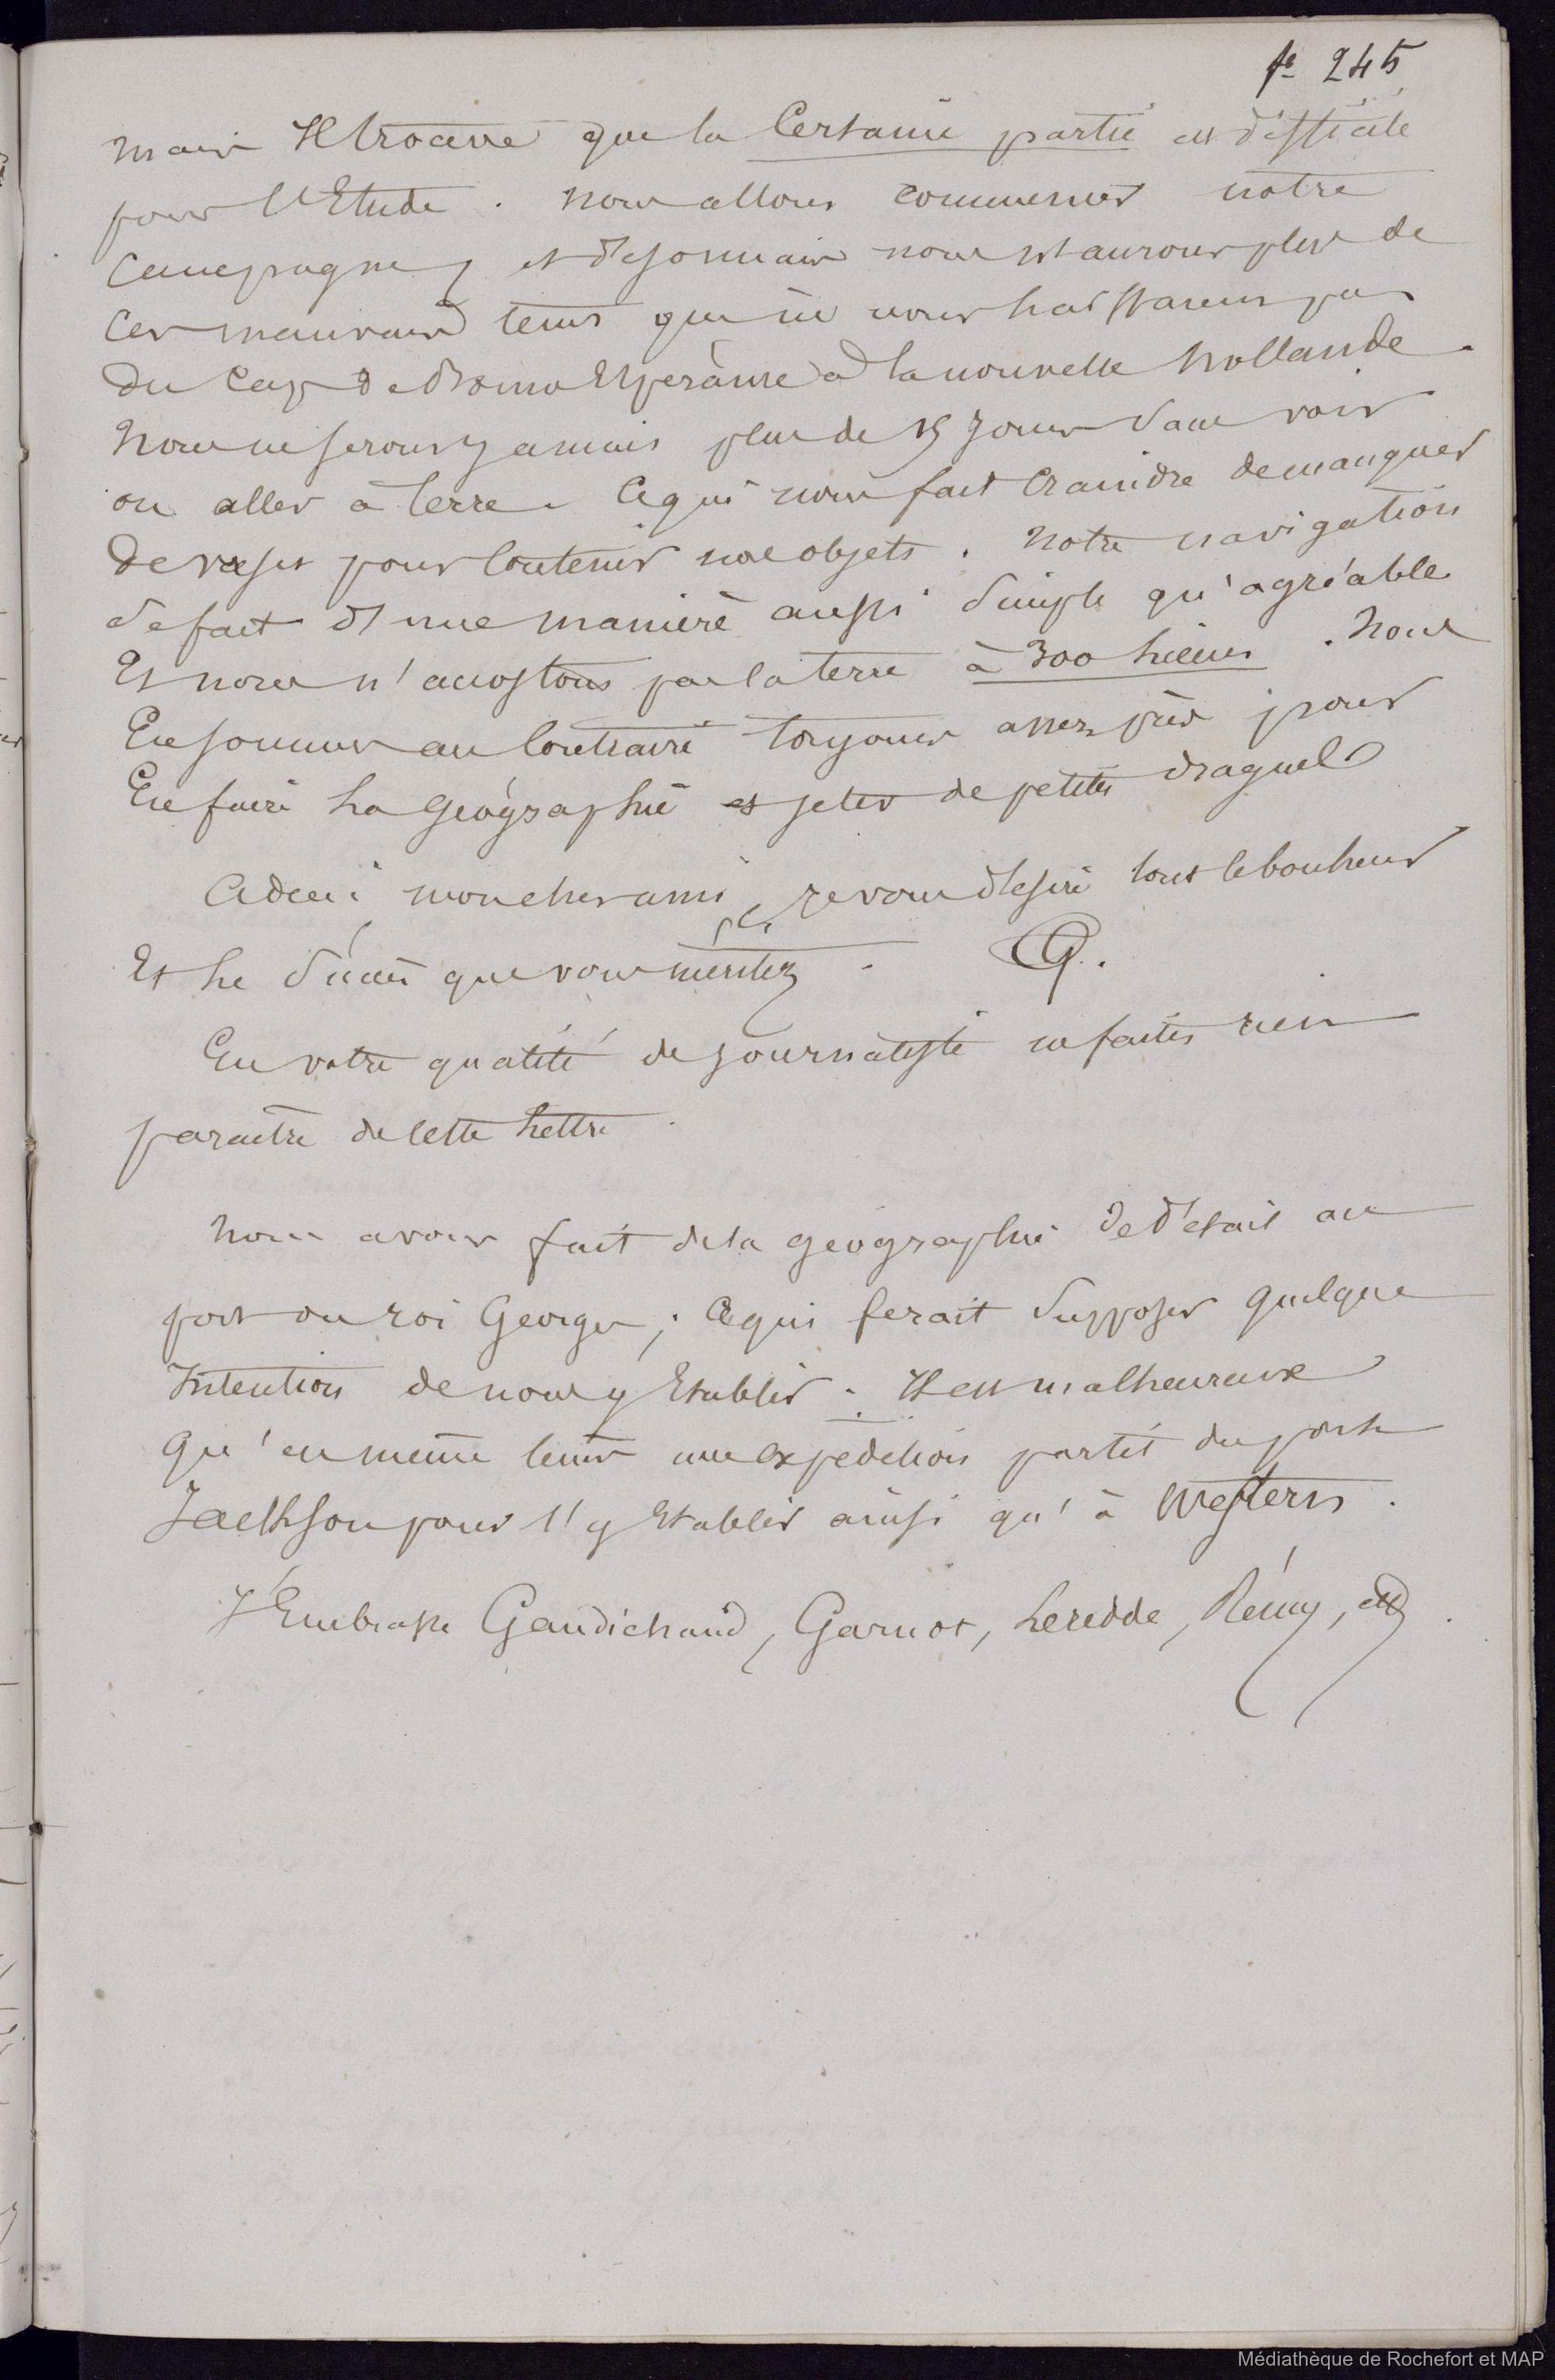 fo 245
mais Il trouve que la Certaine partie est difficile
pour l'Etude . nous allons commencer notre
Campagne, et desormais nous n'aurons plus de
ces mauvais tems que ne nous pas
du Cap de Bonne Esperance à la nouvelle hollande .
Nous ne serons jamais plus de 15 jours sans voir
ou aller à terre . Ce qui nous fait Craindre de manquer
de vases pour Contenir nos objets . Notre navigation
se fait d'une manière aussi simple qu'agréable
Et nous n'accostons pas la terre à 300 lieues . Nous
En sommes au Contraire toujours assez près pour
En faire La Géographie et jeter de petites dragues
Adieu mon cher ami, je vous desire tout le bonheur
Et le succès que vous meritez . Q.
En votre qualité de journaliste ne faites rien
paraître de cette Lettre .
Nous avons fait de la géographie de détail au
port du roi Georges ; Ce qui ferait supposer quelque
Intention de nous y Etablir . Il est malheureux
Qu'en même tems une expedition partit du port
Jackson pour s'y Etablir ainsi qu'à Western .
J'Embrasse Gaudichaud, Garnot, Leredde, Rémy, etc .
Médiathèque de Rochefort et MAP